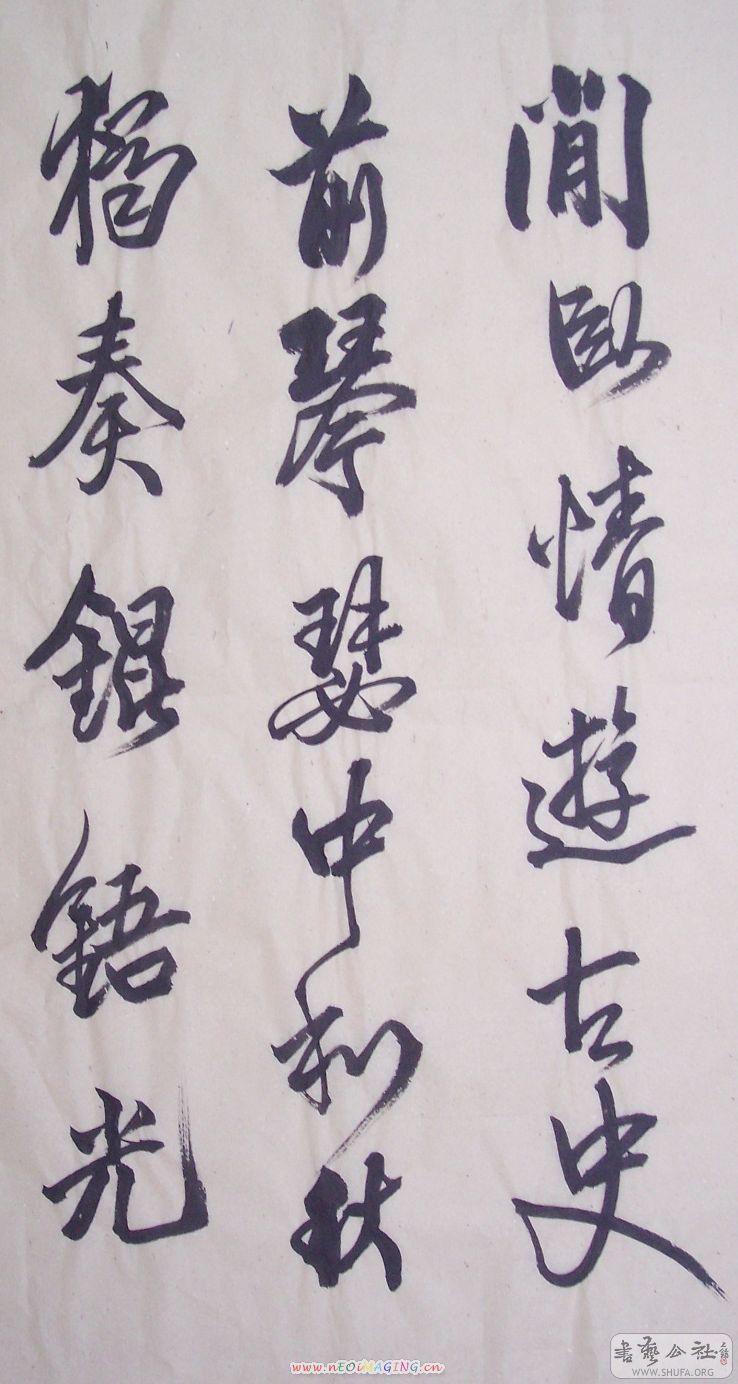 閒臥情遊古史
前琴瑟中和秋
獨奏錕鋙光
www.nEOiMAGING.cn
書藝公社
WWW.SHUFA.ORG